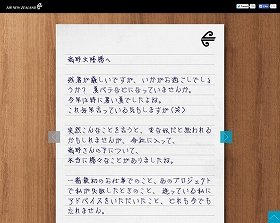 AIR NEW ZEALAND
高野文隆様へ
残暑が厳しいですが、いかがお過ごしでしょ
うか？夏バテなどになっていませんか。
今年は特に暑い夏でしたよね。
これ毎年言っている気もしますが(笑)
突然こんなことを言うと、変な奴だと思われる
かもしれませんが、今社に入って、
高野さんの下について、
本当に様々なことがありましたね。
一番最初のお仕事でのこと、あのプロジェクト
で私が失敗したときのこと、迷っている私に
アドバイスをいただいたこと、どれも今でも
忘れません。